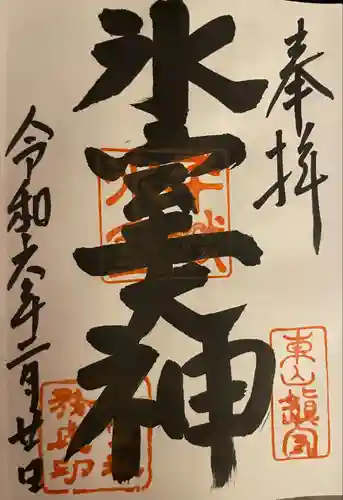 奉拝
氷室大神
東山鎮宮
令和六年二月廿日